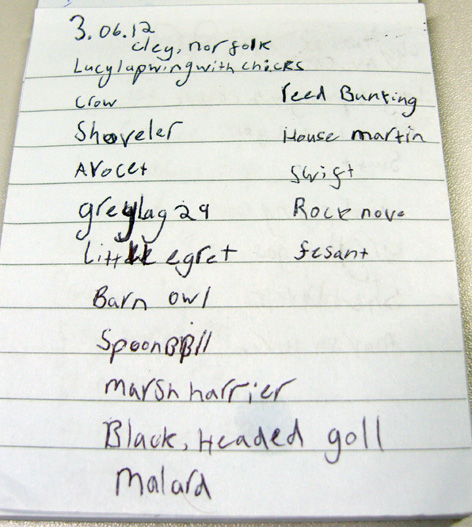 3.06.12
cley, norfolk
Lucy lapwing with chicks
crow
Shoveler
Avocet
greylag 29
Little egret
Barn owl
SpoonBBll
marsh harrier
Black, Headed goll
Malard
reed Bunting
House martin
Swift
Rock nove
fesant